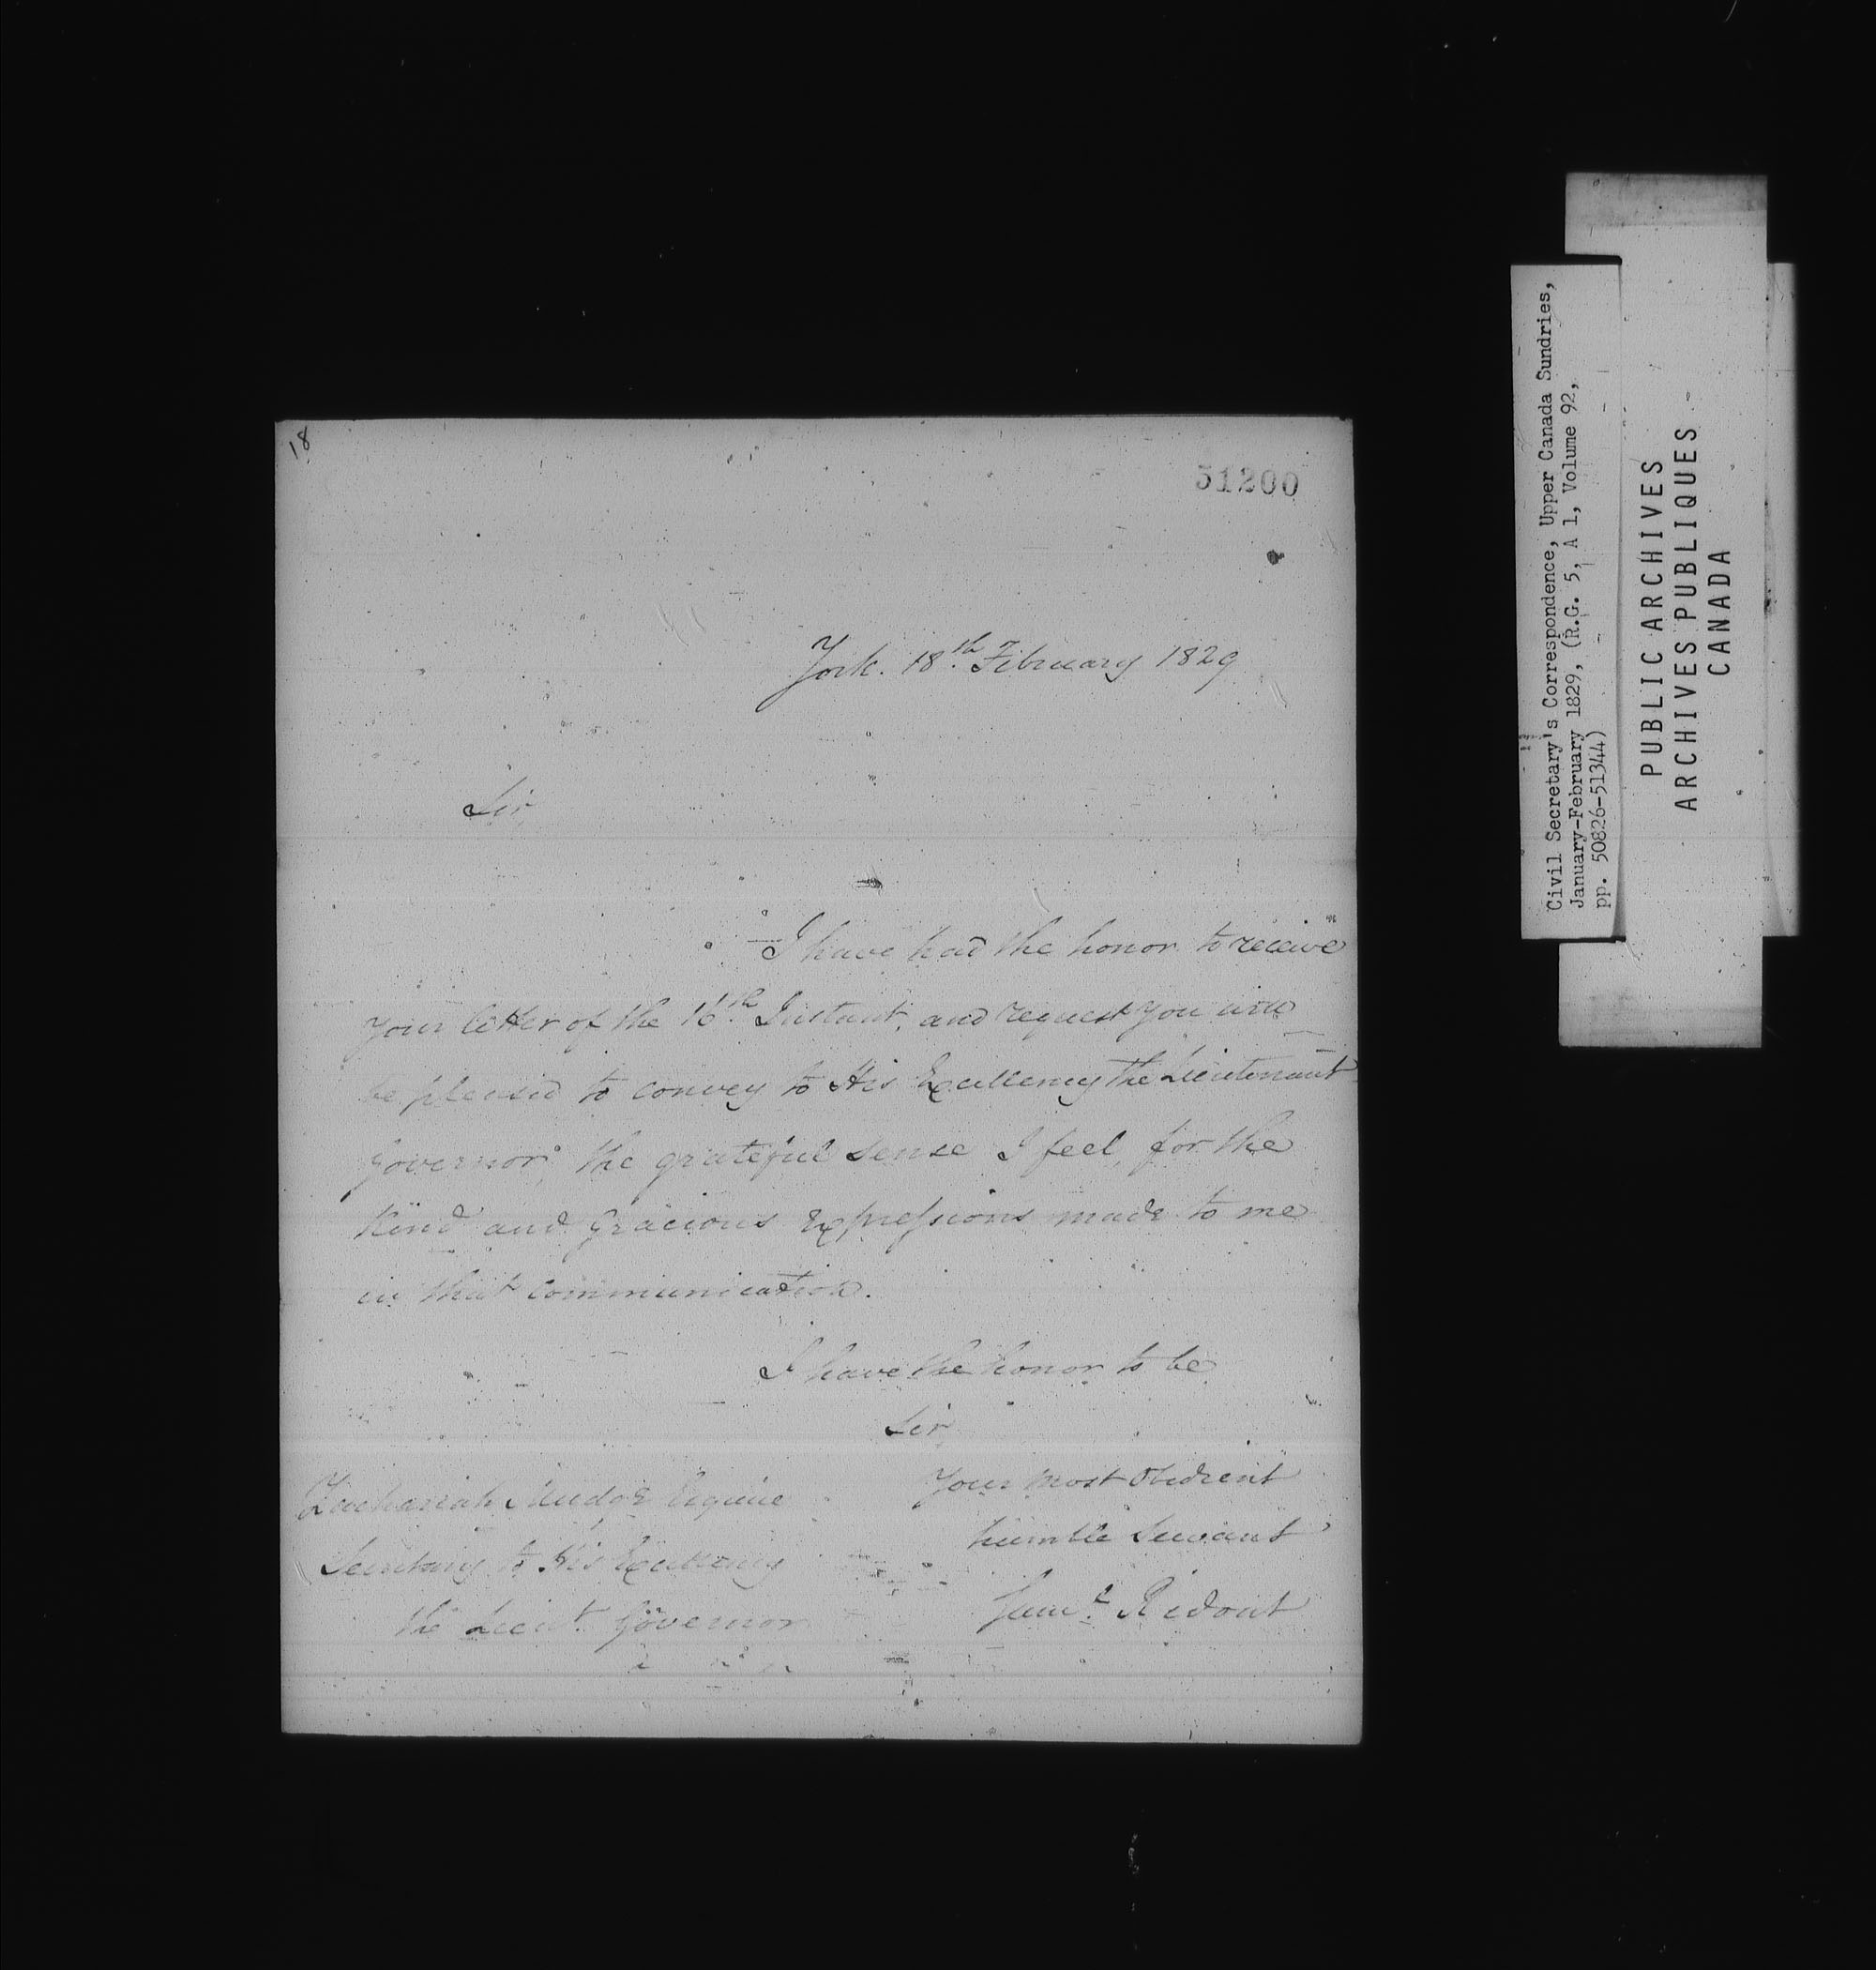 18
51200
York. 18th February 1829
Sir
I have had the honor to receive
your letter of the 16th Instant, and request you will
be pleased to convey to His Excellency the Lieutenant
Governor, the grateful sense I feel, for the
Kind and Gracious Expressions made to me
in that Communication.
I have the honor to be
Sir
Your most Obedient
humble Servant
Saml Ridout
Zachariah Mudge Esquire
Secretary to His Excellency
the Lieut. Governor
Civil Secretary's Correspondence, Upper Canada Sundries,
January-February 1829, (R.G. 5, A 1, Volume 92,
pp. 50826-51344)
PUBLIC ARCHIVES
ARCHIVES PUBLIQUES
CANADA